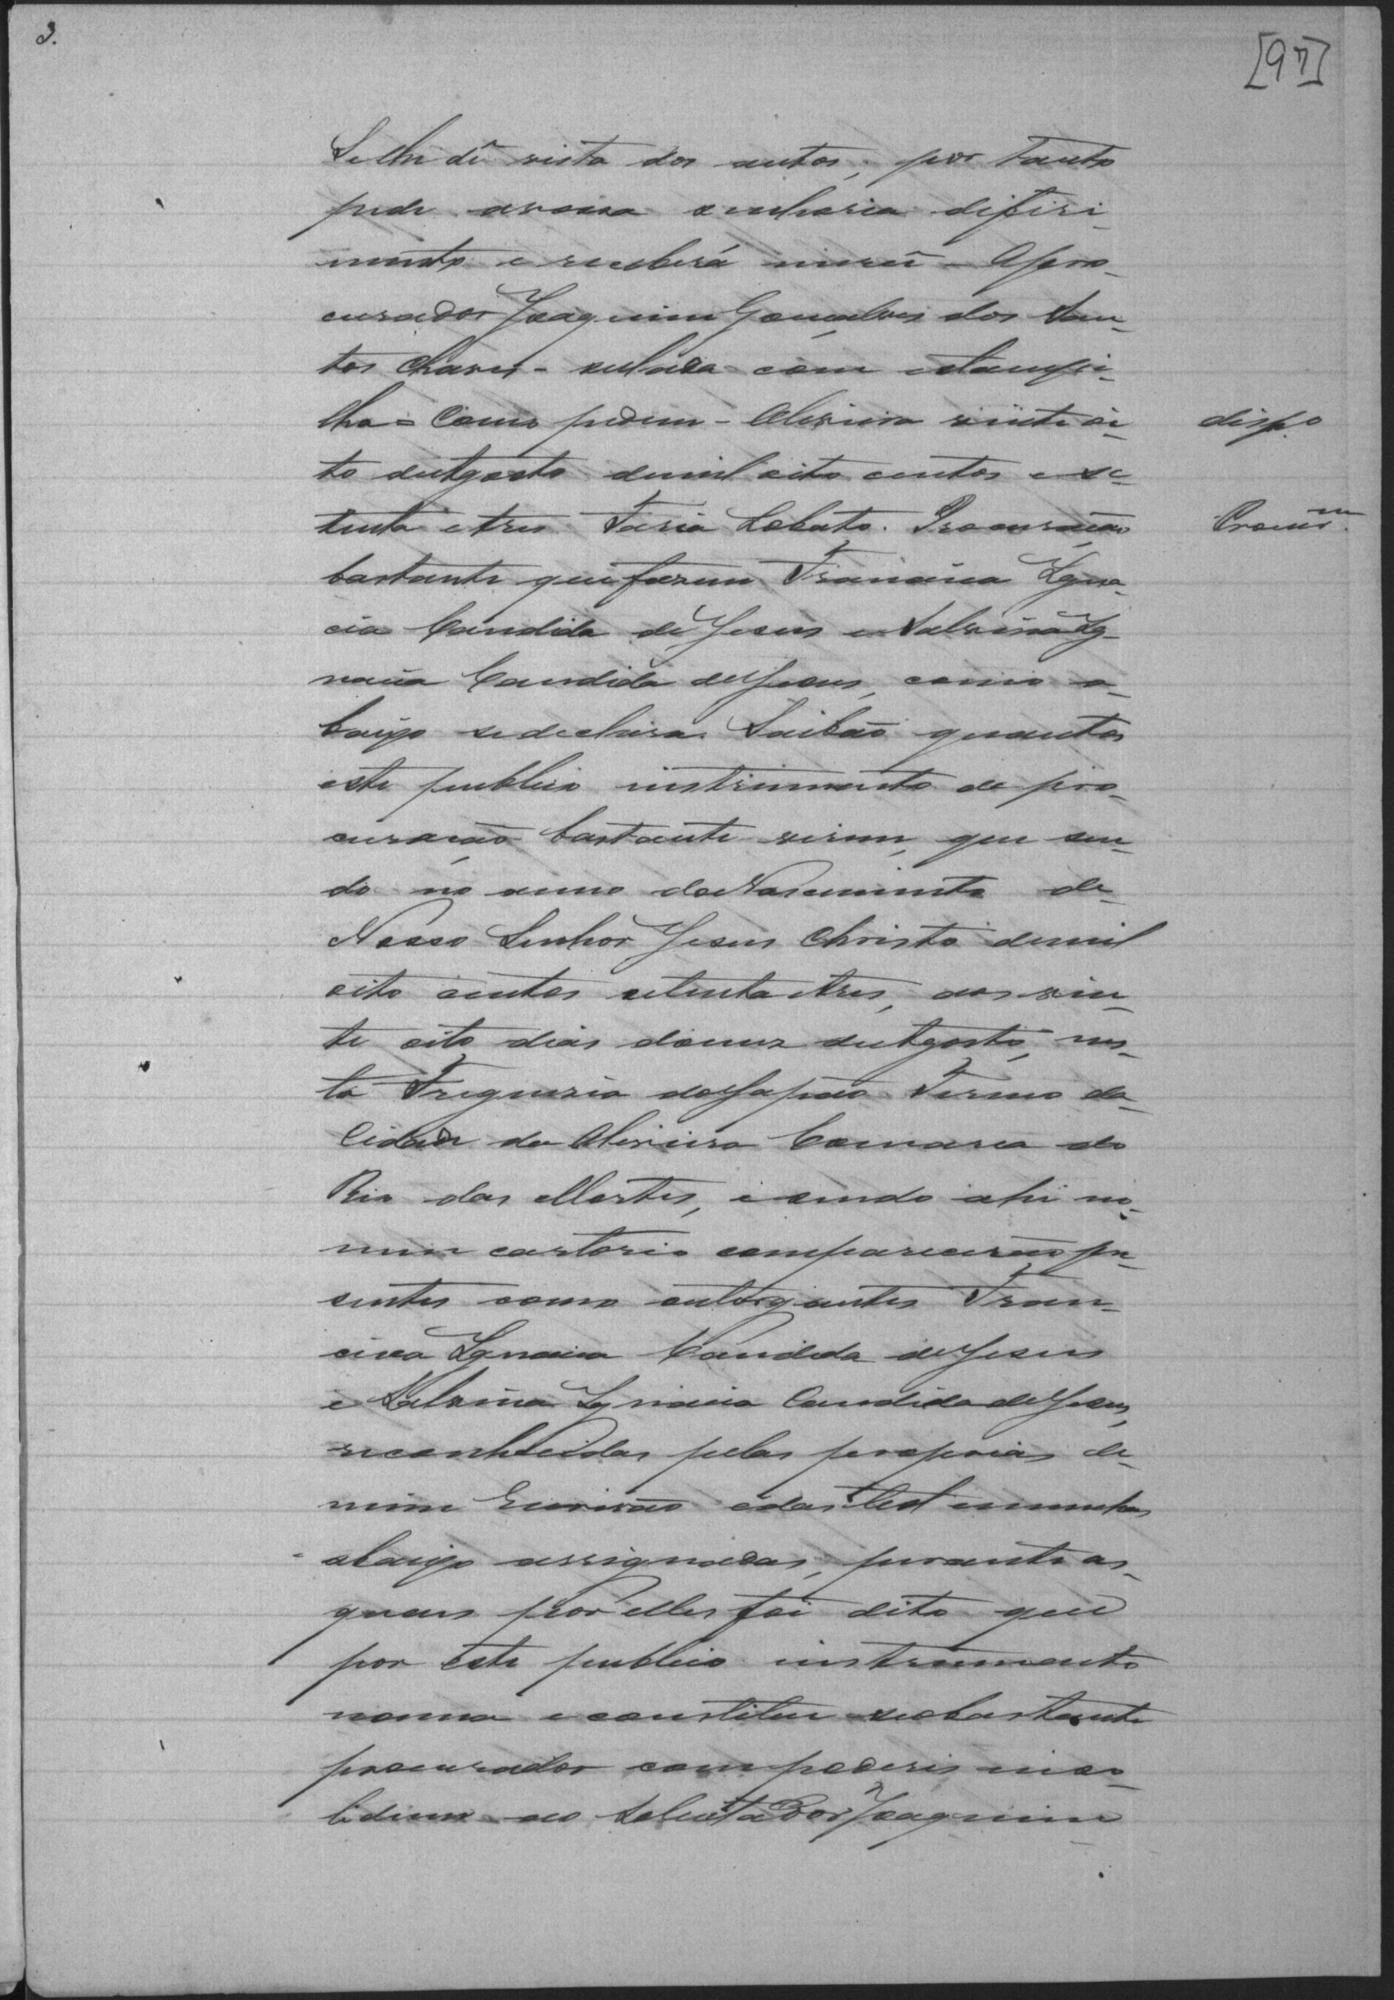 3.
[97]
Se lhe dê vista dos autos, por tanto
pede avossa senhoria difiri-
mento e receberá mercê - Opro-
curador Joaquim Gonçalves dos San-
tos Chaves - sellada com estampi-
lha = Como pedem - Oliveira vinte oi-
to deAgosto demil oito centos e se-
tenta etres Faria Lobato. Procuração
bastante quefazem Francisca Igna-
cia Candida deJesus e Salvina Ig-
nacia Candida deJesus, como a-
baixo sedeclara. Saibão quantos
este publico instrumento de pro-
curação bastante virem, que sen-
do no anno doNascimento de
Nosso Senhor Jesus Christo demil
oito centos setenta etres, aos vin-
te oito dias domez deAgosto, nes-
ta Freguesia doJapão Termo da
Cidade de Oliveira Comarca do
Rio das Mortes, e sendo ahi no
meu cartorio comparecerão pre-
sentes como outorgantes Fran-
cisca Ignacia Candida deJesus
e Salvina Ignacia Candida deJesus,
reconhecidas pelas proprias de
mim Escrivão edas testemunhas
abaixo assignadas, perante as
quaes por elles foi dito que
por este publico instrumento
nomea e constitue seobastante
procurador compoderes inso-
lidum ao Solicitador Joaquim
disp.o
Procur.m